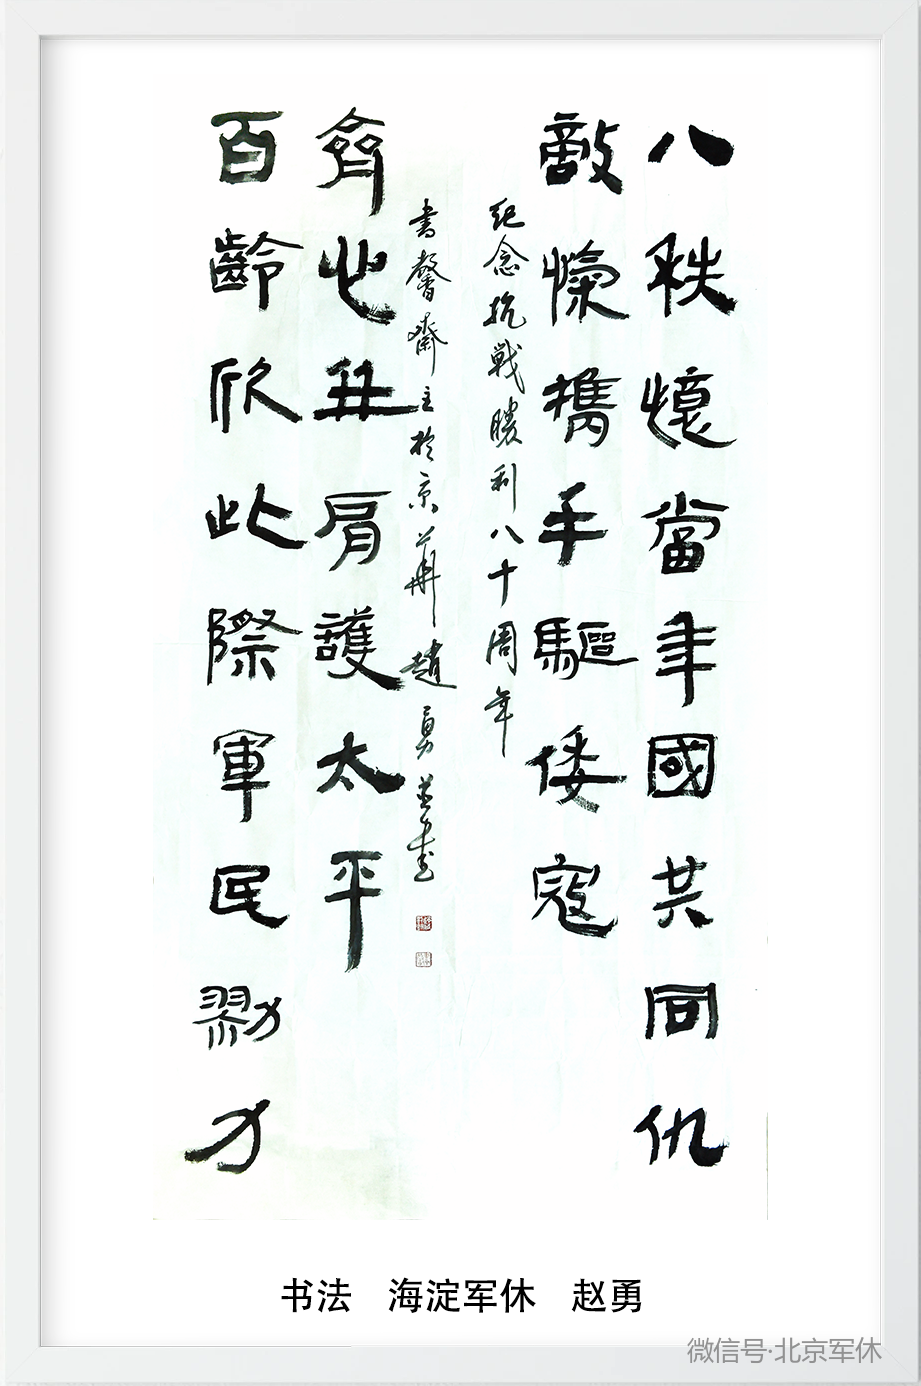 八秩懷當年國共同仇
敵愾攜手驅倭寇
紀念抗戰勝利八十周年
百齡欣此際軍民勠力
齊心並肩護太平
書馨齋主於京華趙勇並書
书法 海淀军休 赵勇
微信号·北京军休